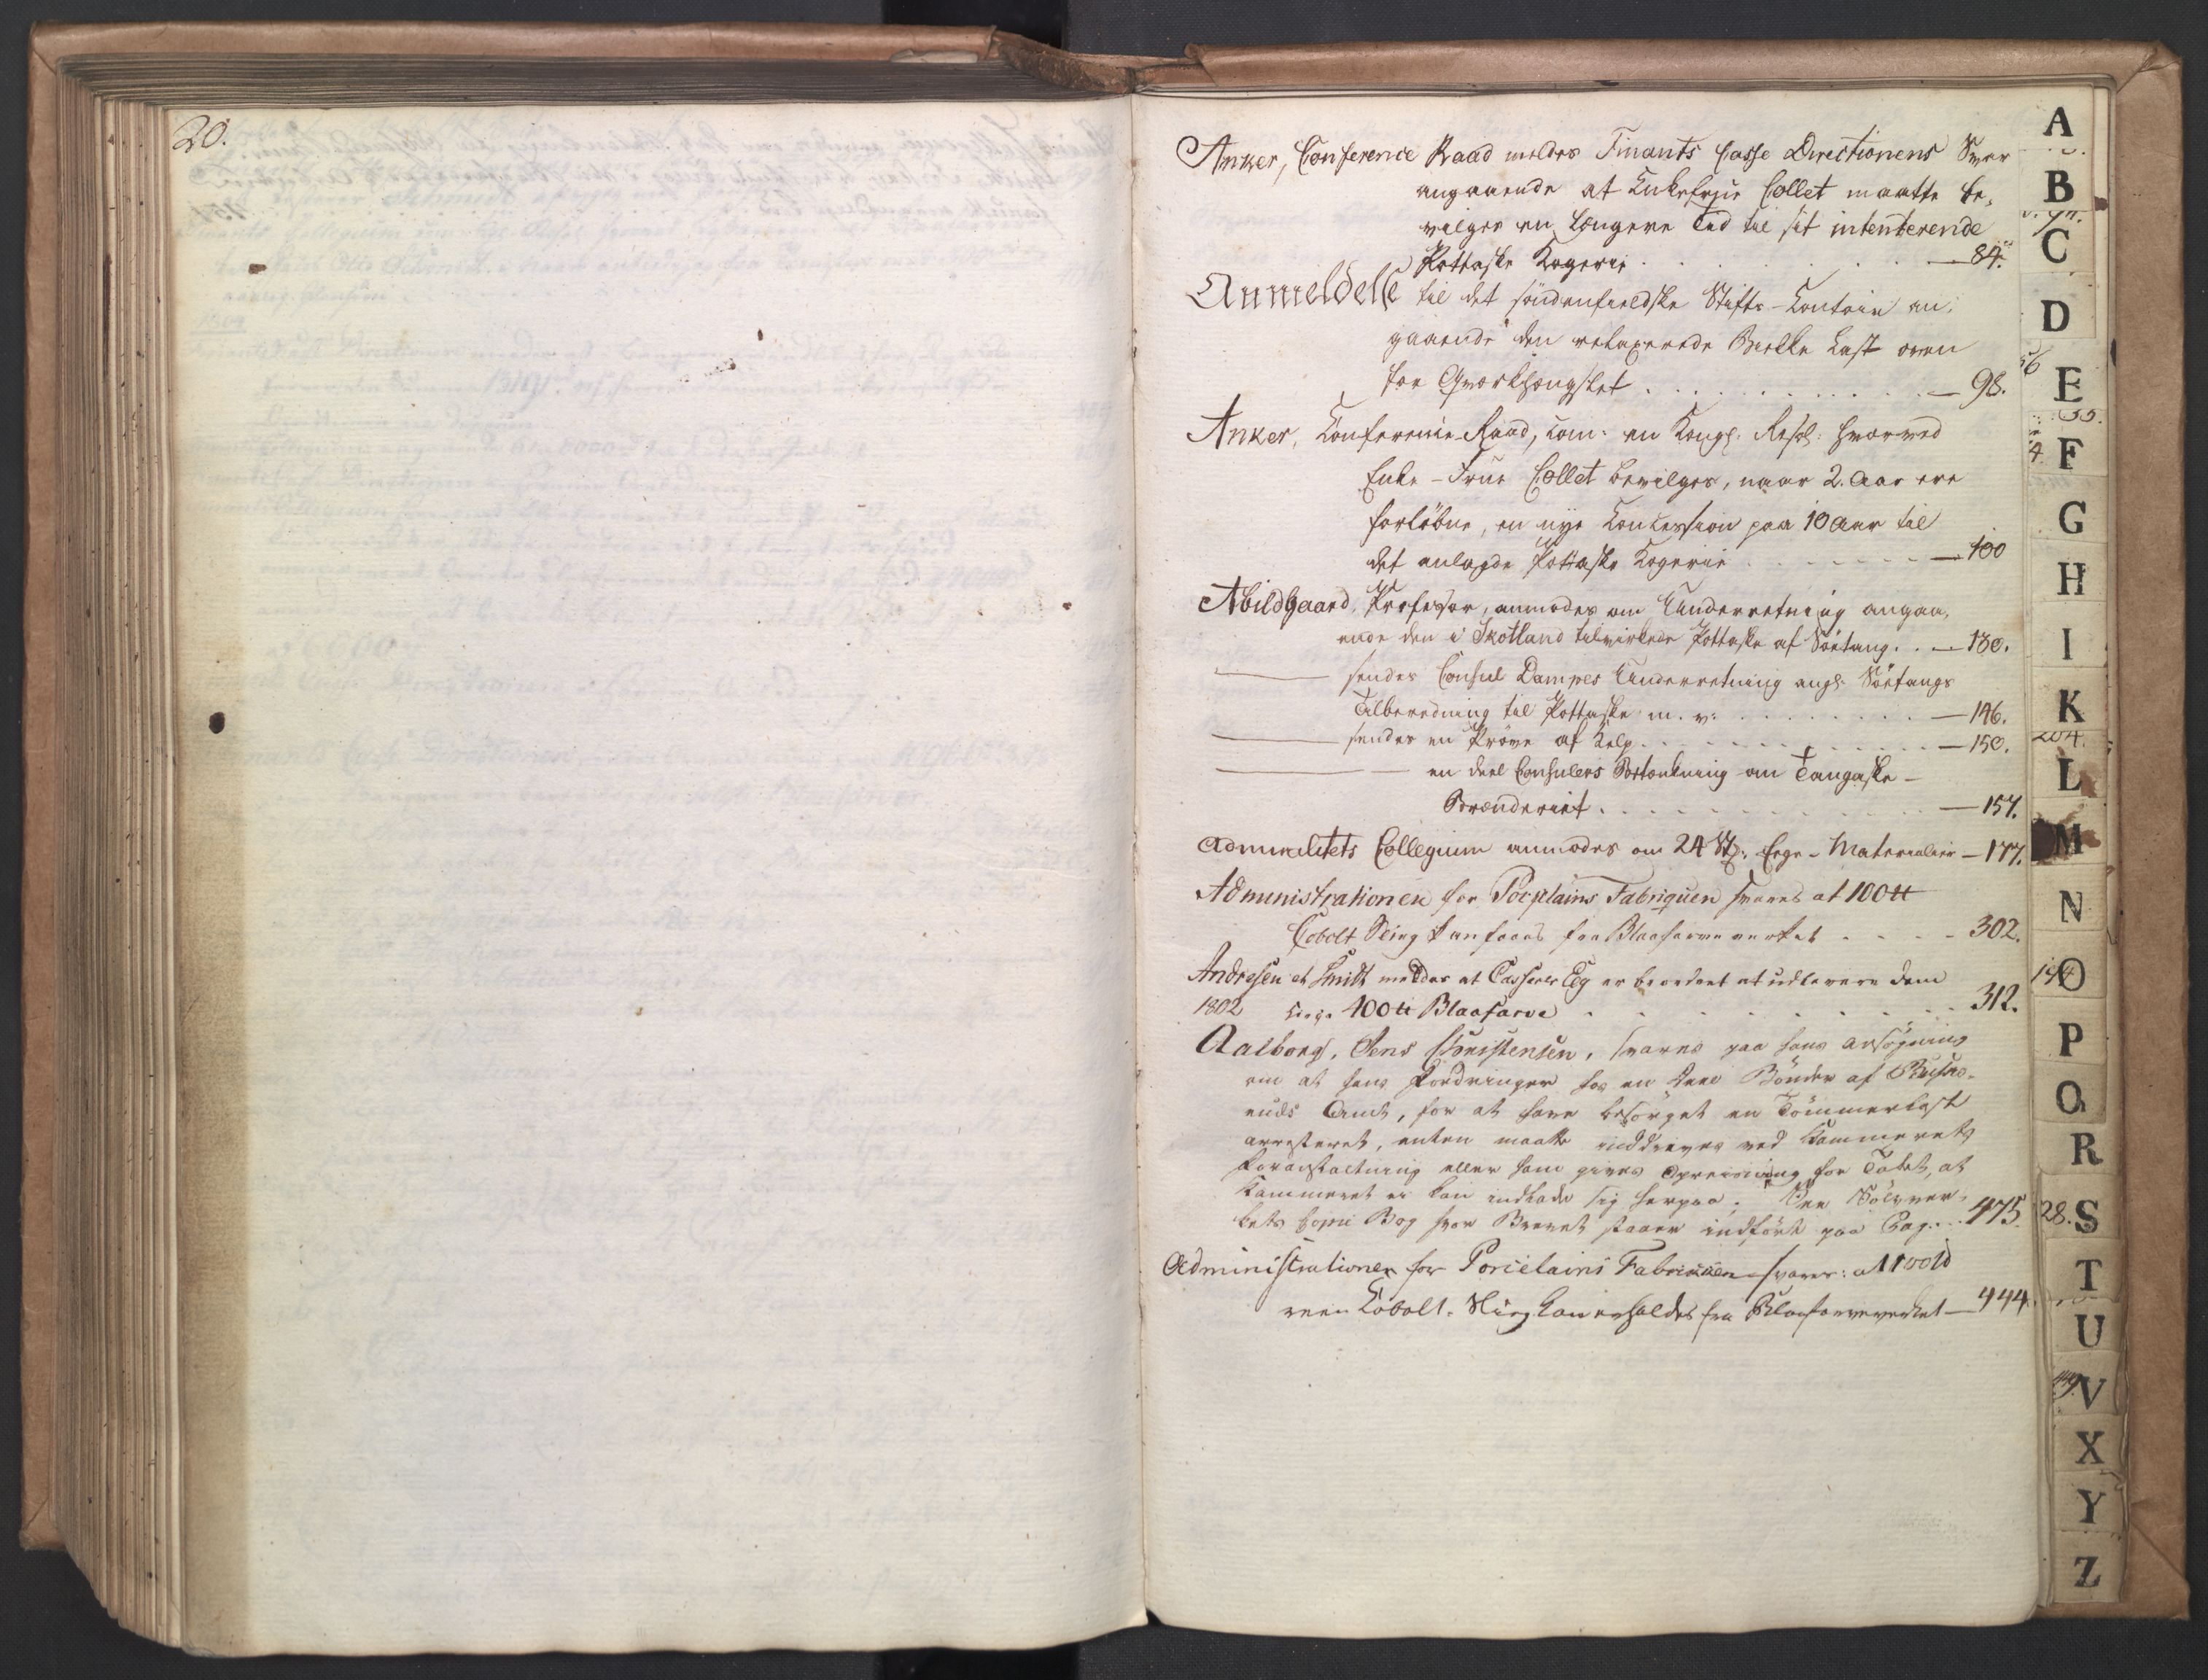 20.
Anker, Conference Raad meldes Finants Casse Directionens Svar
angaaende at Enkefrue Collet maatte be,
vilges en længere Tid til sit intenterende
Pottaske Kogerie . . . . . . — 84.
Anmeldelse til det söndenfieldske Stifts-Contoir an,
gaaende den Bielke Last oven
for . . . . . . — 98.
Anker, Conferenc-Raad, com: en Kongl. Resol: hvorved
Enke-Frue Collet bevilges, naar 2. Aar ere
forlöbne, en nye Concession paa 10 Aar til
det anlagde Pottaske Kogerie . . . . — 100
Abildgaard, Professor, anmodes om Underretning angaa,
ende den i Skotland tilvirkede Pottaske af Söetang . . — 130.
— sendes Consul Dampes Underretning angl. Söetangs
Tilberedning til Pottaske m. v: . . . . — 146.
— sendes en Pröve af Kelp . . . . — 150.
— en deel Consulers Betænkning om Tangaske-
Brænderiet . . . . — 157.
Admiralitets Collegium anmodes om 24 Ege-Materialier — 177.
Administrationen for Porcplains Fabriquen svares at 100 tt
Cobolt Slieg kan faaes fra Blaafarveverket . . . . 302.
Andresen et Smidt meldes at Casserer Eeg er beordret at udlevere dem
1802 100 tt Blaafarve . . . . 312.
Aalborg, Jens Christensen, svares paa hans ansögning
om at hans Fordringer hos en deel Bönder af Buske-
ruds Amt, for at have besörget en Tömmerlast
arresteret, enten maatte inddrives ved Kammerets
Foranstaltning eller ham gives Opreisning for Tabet, at
Kammeret ei kan indlade sig herpaa; See Sölvver-
kets Copie Bog hvor Brevet staaer indfört paa Pag. . . 475
Administrationen for Porcelains Fabrikken svares: at 100 tt
reen Cobolt. Slieg kan erholdes fra Blaafarveverket — 444.
A
B
C
D
E
F
G
H
I
K
L
M
N
O
P
Q
R
S
T
U
V
X
Y
Z